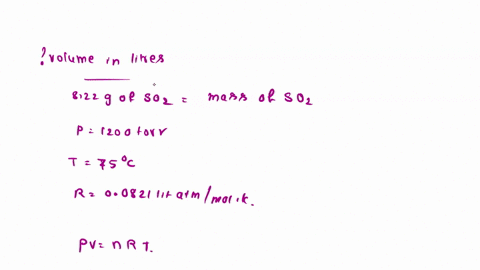 ? volume in lires
8.22 g of SO2 = mass of SO2
P = 1200 torr
T = 75°C
R = 0.0821 lit atm/mol.k.
PV = n R T.